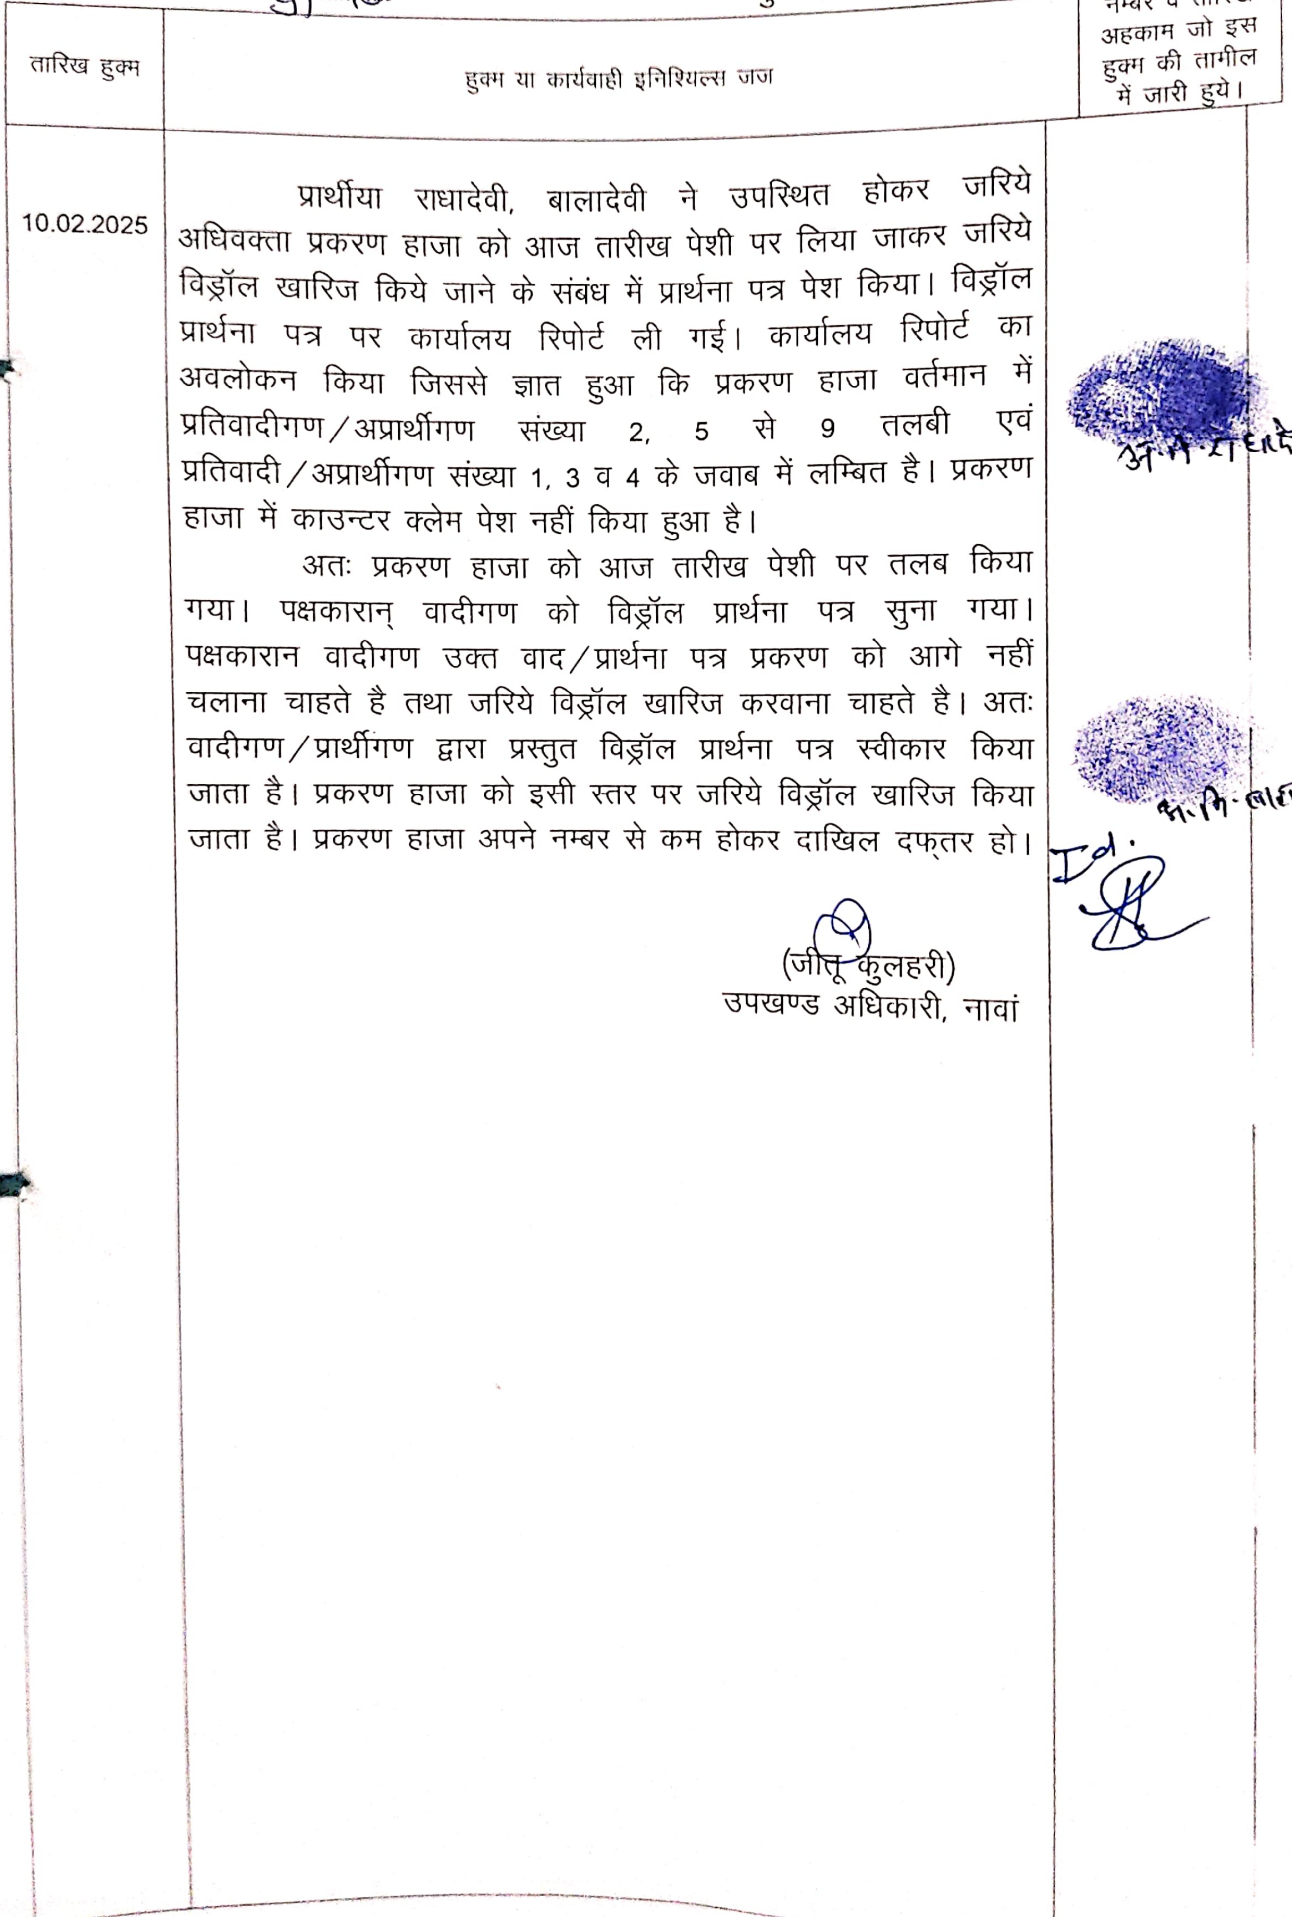 नम्बर व तारिख
अहकाम जो इस
हुक्म की तामील
में जारी हुये।
तारिख हुक्म
हुक्म या कार्यवाही इनिशियल्स जज
10.02.2025
प्रार्थीया राधादेवी, बालादेवी ने उपस्थित होकर जरिये
अधिवक्ता प्रकरण हाजा को आज तारीख पेशी पर लिया जाकर जरिये
विड्रॉल खारिज किये जाने के संबंध में प्रार्थना पत्र पेश किया। विड्रॉल
प्रार्थना पत्र पर कार्यालय रिपोर्ट ली गई। कार्यालय रिपोर्ट का
अवलोकन किया जिससे ज्ञात हुआ कि प्रकरण हाजा वर्तमान में
प्रतिवादीगण/अप्रार्थीगण संख्या 2, 5 से 9 तलबी एवं
प्रतिवादी/अप्रार्थीगण संख्या 1, 3 व 4 के जवाब में लम्बित है। प्रकरण
हाजा में काउन्टर क्लेम पेश नहीं किया हुआ है।
अतः प्रकरण हाजा को आज तारीख पेशी पर तलब किया
गया। पक्षकारान् वादीगण को विड्रॉल प्रार्थना पत्र सुना गया।
पक्षकारान वादीगण उक्त वाद/प्रार्थना पत्र प्रकरण को आगे नहीं
चलाना चाहते है तथा जरिये विड्रॉल खारिज करवाना चाहते है। अतः
वादीगण/प्रार्थीगण द्वारा प्रस्तुत विड्रॉल प्रार्थना पत्र स्वीकार किया
जाता है। प्रकरण हाजा को इसी स्तर पर जरिये विड्रॉल खारिज किया
जाता है। प्रकरण हाजा अपने नम्बर से कम होकर दाखिल दफ्तर हो।
Id.
(जीतू कुलहरी)
उपखण्ड अधिकारी, नावां